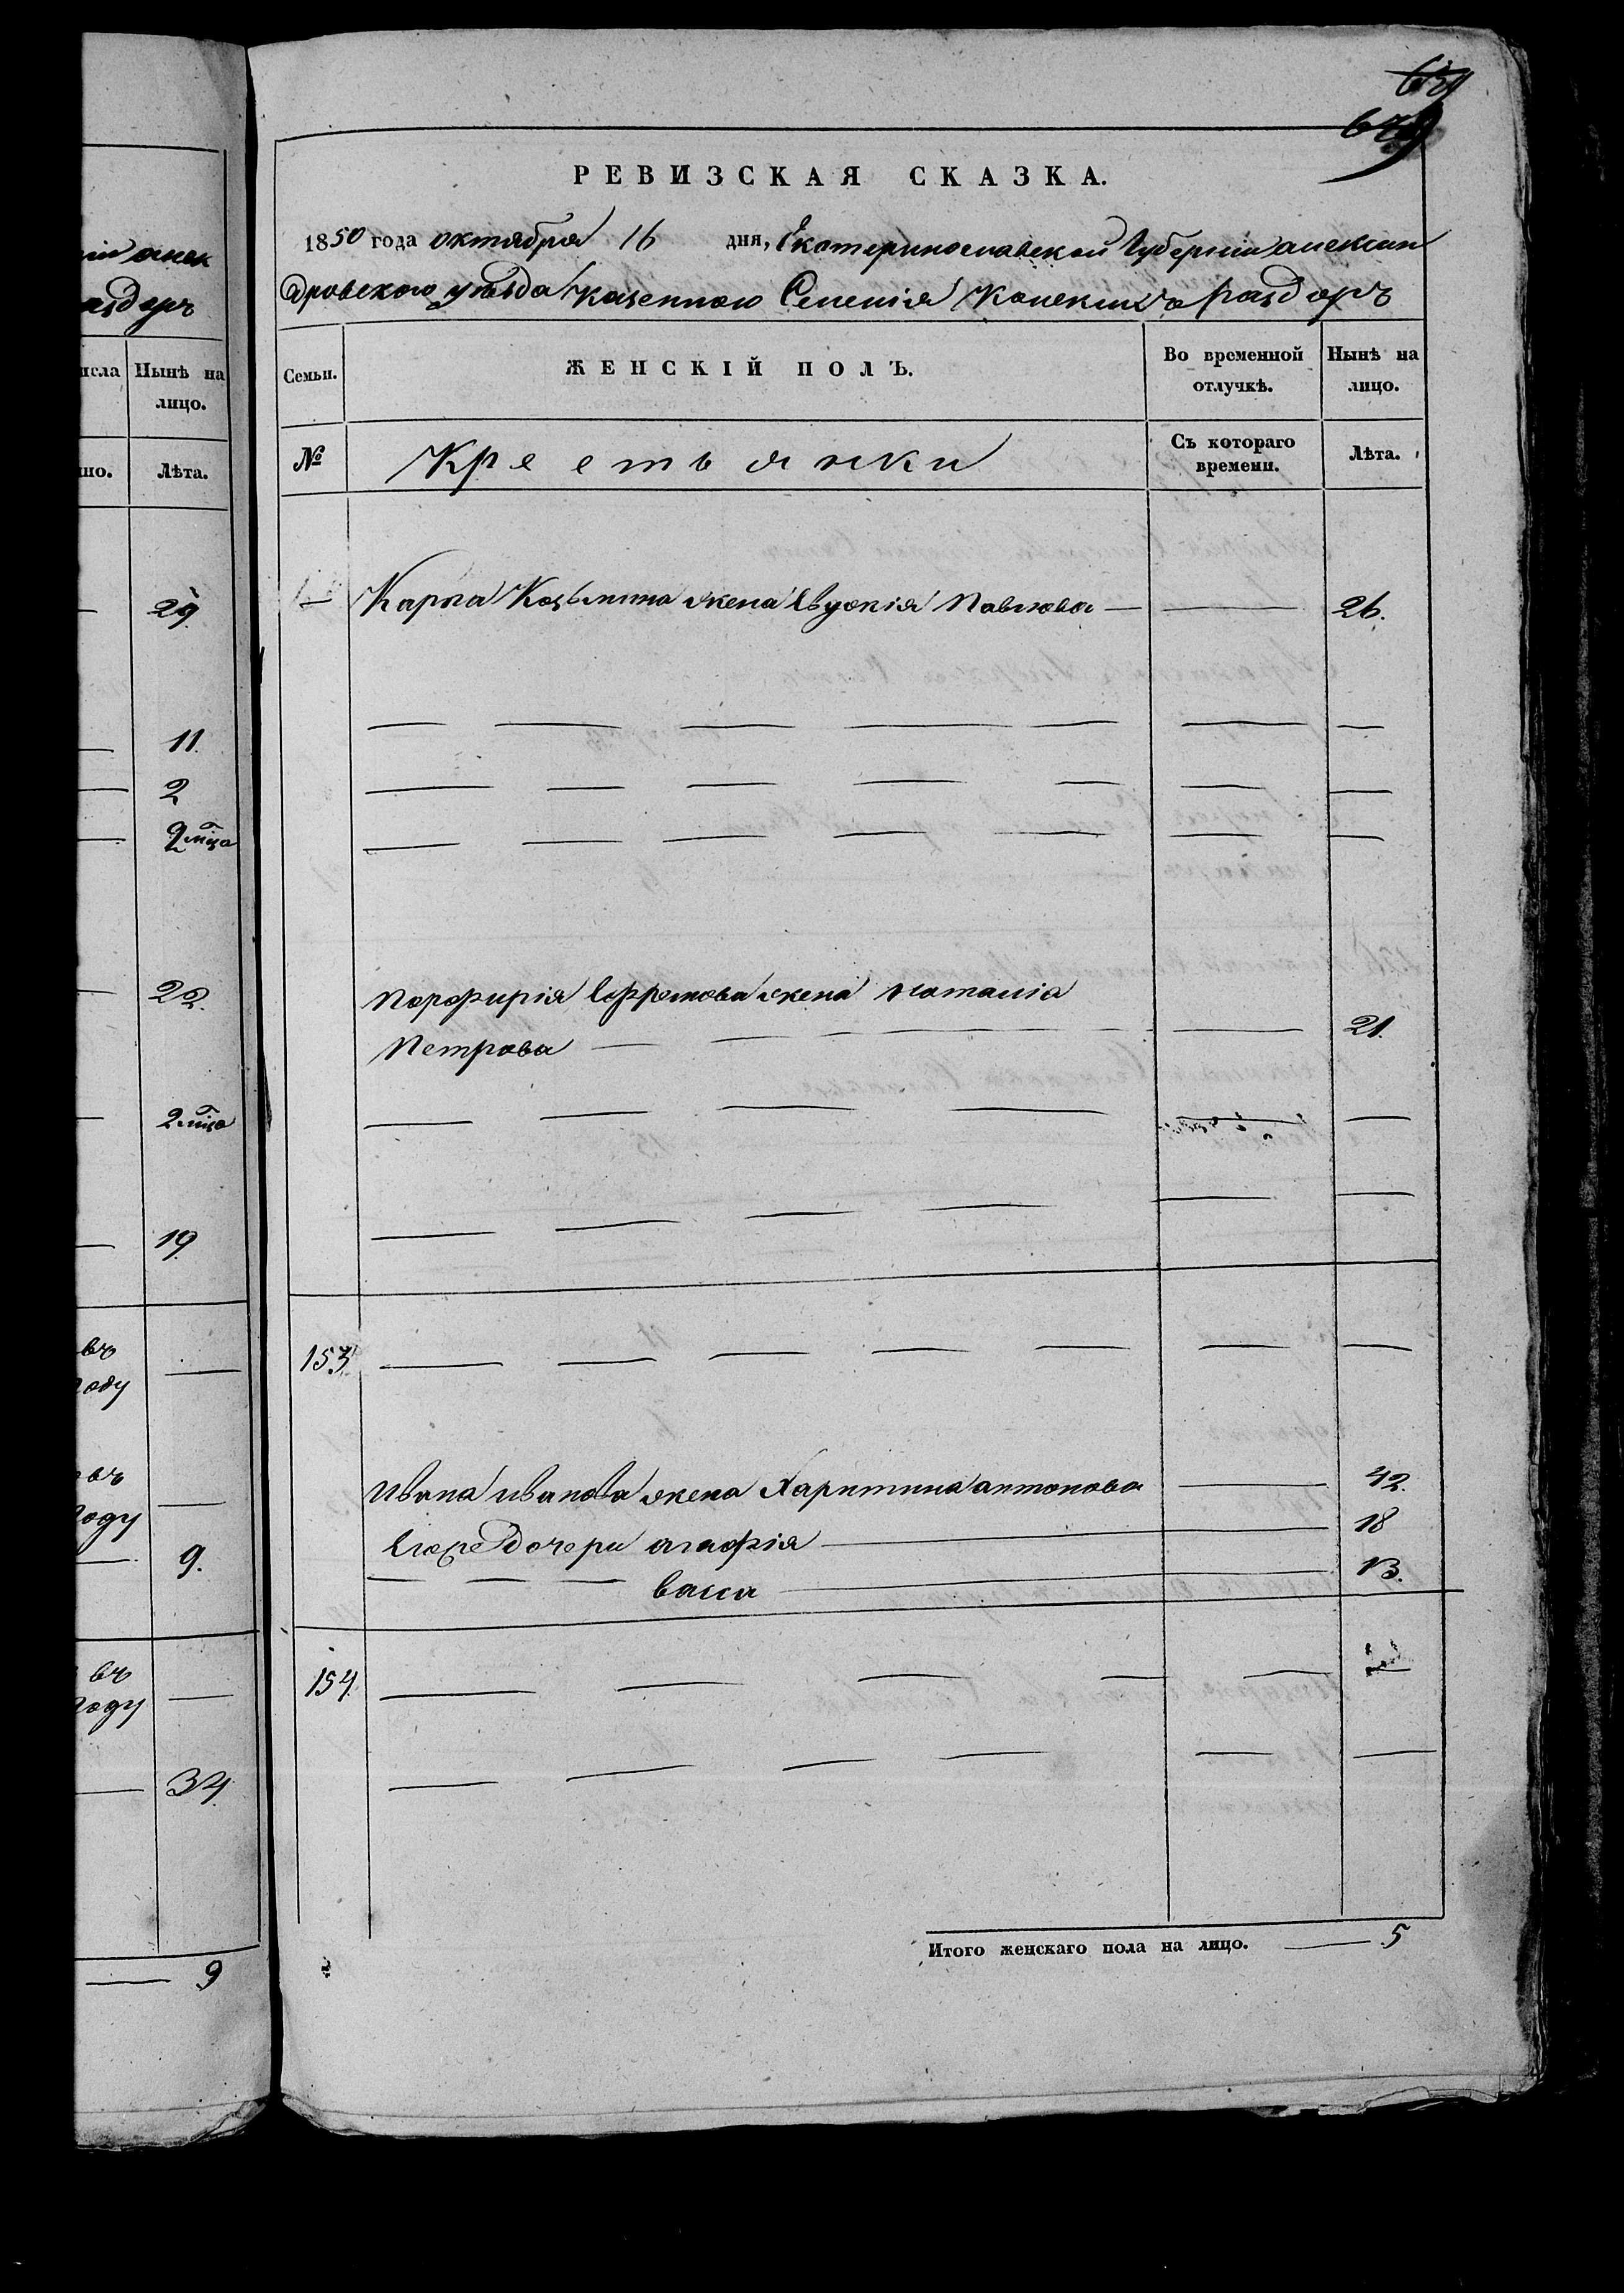 ній алек
аздеръ
исла Нынѣ на
лицо.
но. Лѣта.
29.
11.
2
2 мца
22.
2 мца
19.
въ
году
въ
году
9.
въ
году
34.
9
679
РЕВИЗСКАЯ СКАЗКА.
1850 года октября 16 дня, Екатеринославской Губерніи алексан
дровского уѣзда казенного Селенія Конскихъ раздеръ
Семьи. ЖЕНСКІЙ ПОЛЪ. Во временной отлучкѣ. Нынѣ на лицо.
№ Крестьянки Съ котораго времени. Лѣта.
Карпа Козьмина жена Евдокія Павлова 26.
Порфирія Ефремова жена наталія
Петрова 21.
153.
Ивана иванова жена Харитина антонова 42.
Егоже дочери агафія 18
васса 13.
154.
Итого женскаго пола на лицо. 5